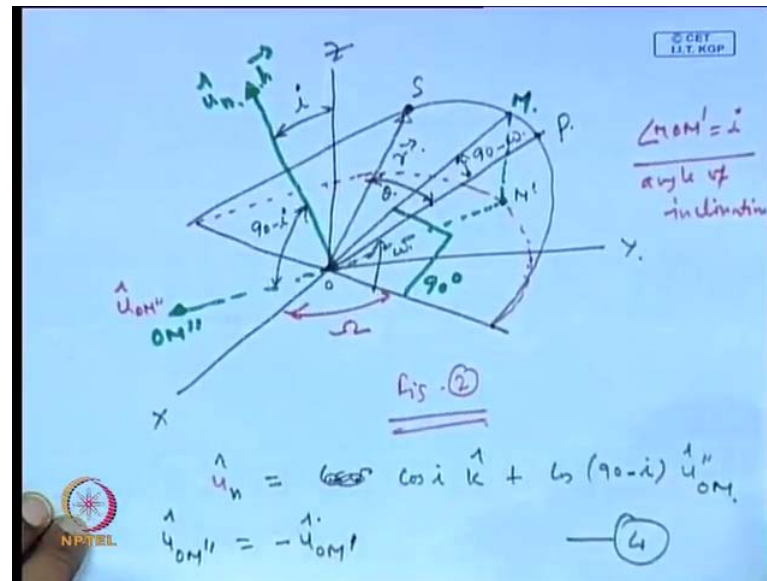 © CET
I.I.T. KGP
Z
û_n. h⃗
i
S
M.
P.
∠MOM' = i
angle of
inclination
r⃗.
90-ω.
θ.
M'
90-i
ω.
Y.
o
û_OM''
OM''
90°
Ω
X
Fig. ②
û_n = cos i k̂ + cos (90-i) û''_OM.
û_OM'' = - û_OM' — ④
NPTEL